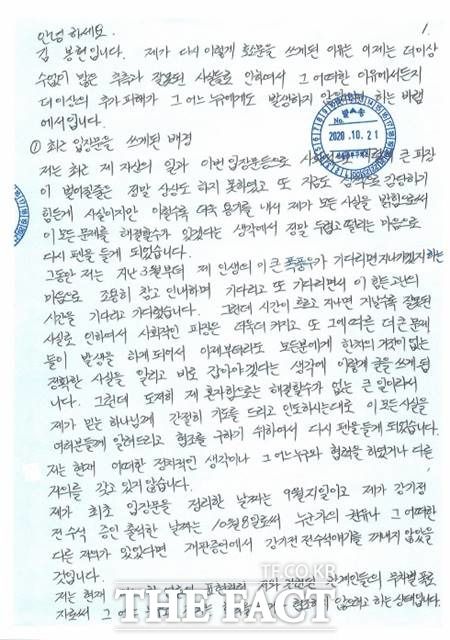 1.
안녕 하세요.
김 봉현입니다. 제가 다시 이렇게 호소문을 쓰게된 이유는 이제는 더이상
수없이 많은 추측과 잘못된 사실들로 인하여서 그 어떠한 이유에서든지
더이상의 추가피해가 그 어느누구에게도 발생하지 않 하는 바램
에서입니다.
발송
No.
2020.10.21
① 최근 입장문을 쓰게된 배경
저는 최근 제 자신의 일과 이번 입장문등으로 큰 파장
이 벌어질줄은 정말 상상도 하지 못하였고 또 지금도 감당하기
힘든게 사실이지만 이럴수록 더욱 용기를 내서 제가 모든 사실을 밝힘으로써
이 모든 문제를 해결할수가 있겠다는 생각에서 정말 두렵고 떨리는 마음으로
다시 펜을 들게 되었습니다.
그동안 저는 지난 3월부터 제 인생의 이 큰 폭풍우가 기다리면 지나가겠지하는
마음으로 조용히 참고 인내하며 기다리고 또 기다리면서 이 힘든고난의
시간을 기다리고 기다렸습니다. 그런데 시간이 흐르고 지나면 지날수록 잘못된
사실로 인하여서 사회적인 파장은 더욱더 커지고 또 그에따른 더 큰 문제
들이 발생을 하게 되어서 이제부터라도 모든분에게 한치의 거짓이 없는
정확한 사실을 알리고 바로 잡아야겠다는 생각에 이렇게 글을 쓰게 됩
니다. 그런데 도저히 제 혼자힘으로는 해결할수가 없는 큰 일이라서
제가 믿는 하나님께 간절히 기도를 드리고 인도하시는대로 이 모든사실을
여러분들께 알려드리고 협조를 구하기 위하여서 다시 펜을 들게 되었습니다.
저는 현재 어떠한 정치적인 생각이나 그 어느누구와 협력을 하였거나 다른
저의를 갖고 있지 않습니다.
제가 최초 입장문을 정리한 날짜는 9월21일이고 제가 강기정
전 수석 증인 출석한 날짜는 10월8일로써 누군가의 권유나 그 어떠한
다른 저의가 있었다면 재판증언에서 강기정 전수석얘기를 꺼내지 않았을
것입니다.
저는 현재 무차별 폭로
자로써 그 협조하지 않으려고 하는 상태입니다.
TF.CO.KR
THE FACT